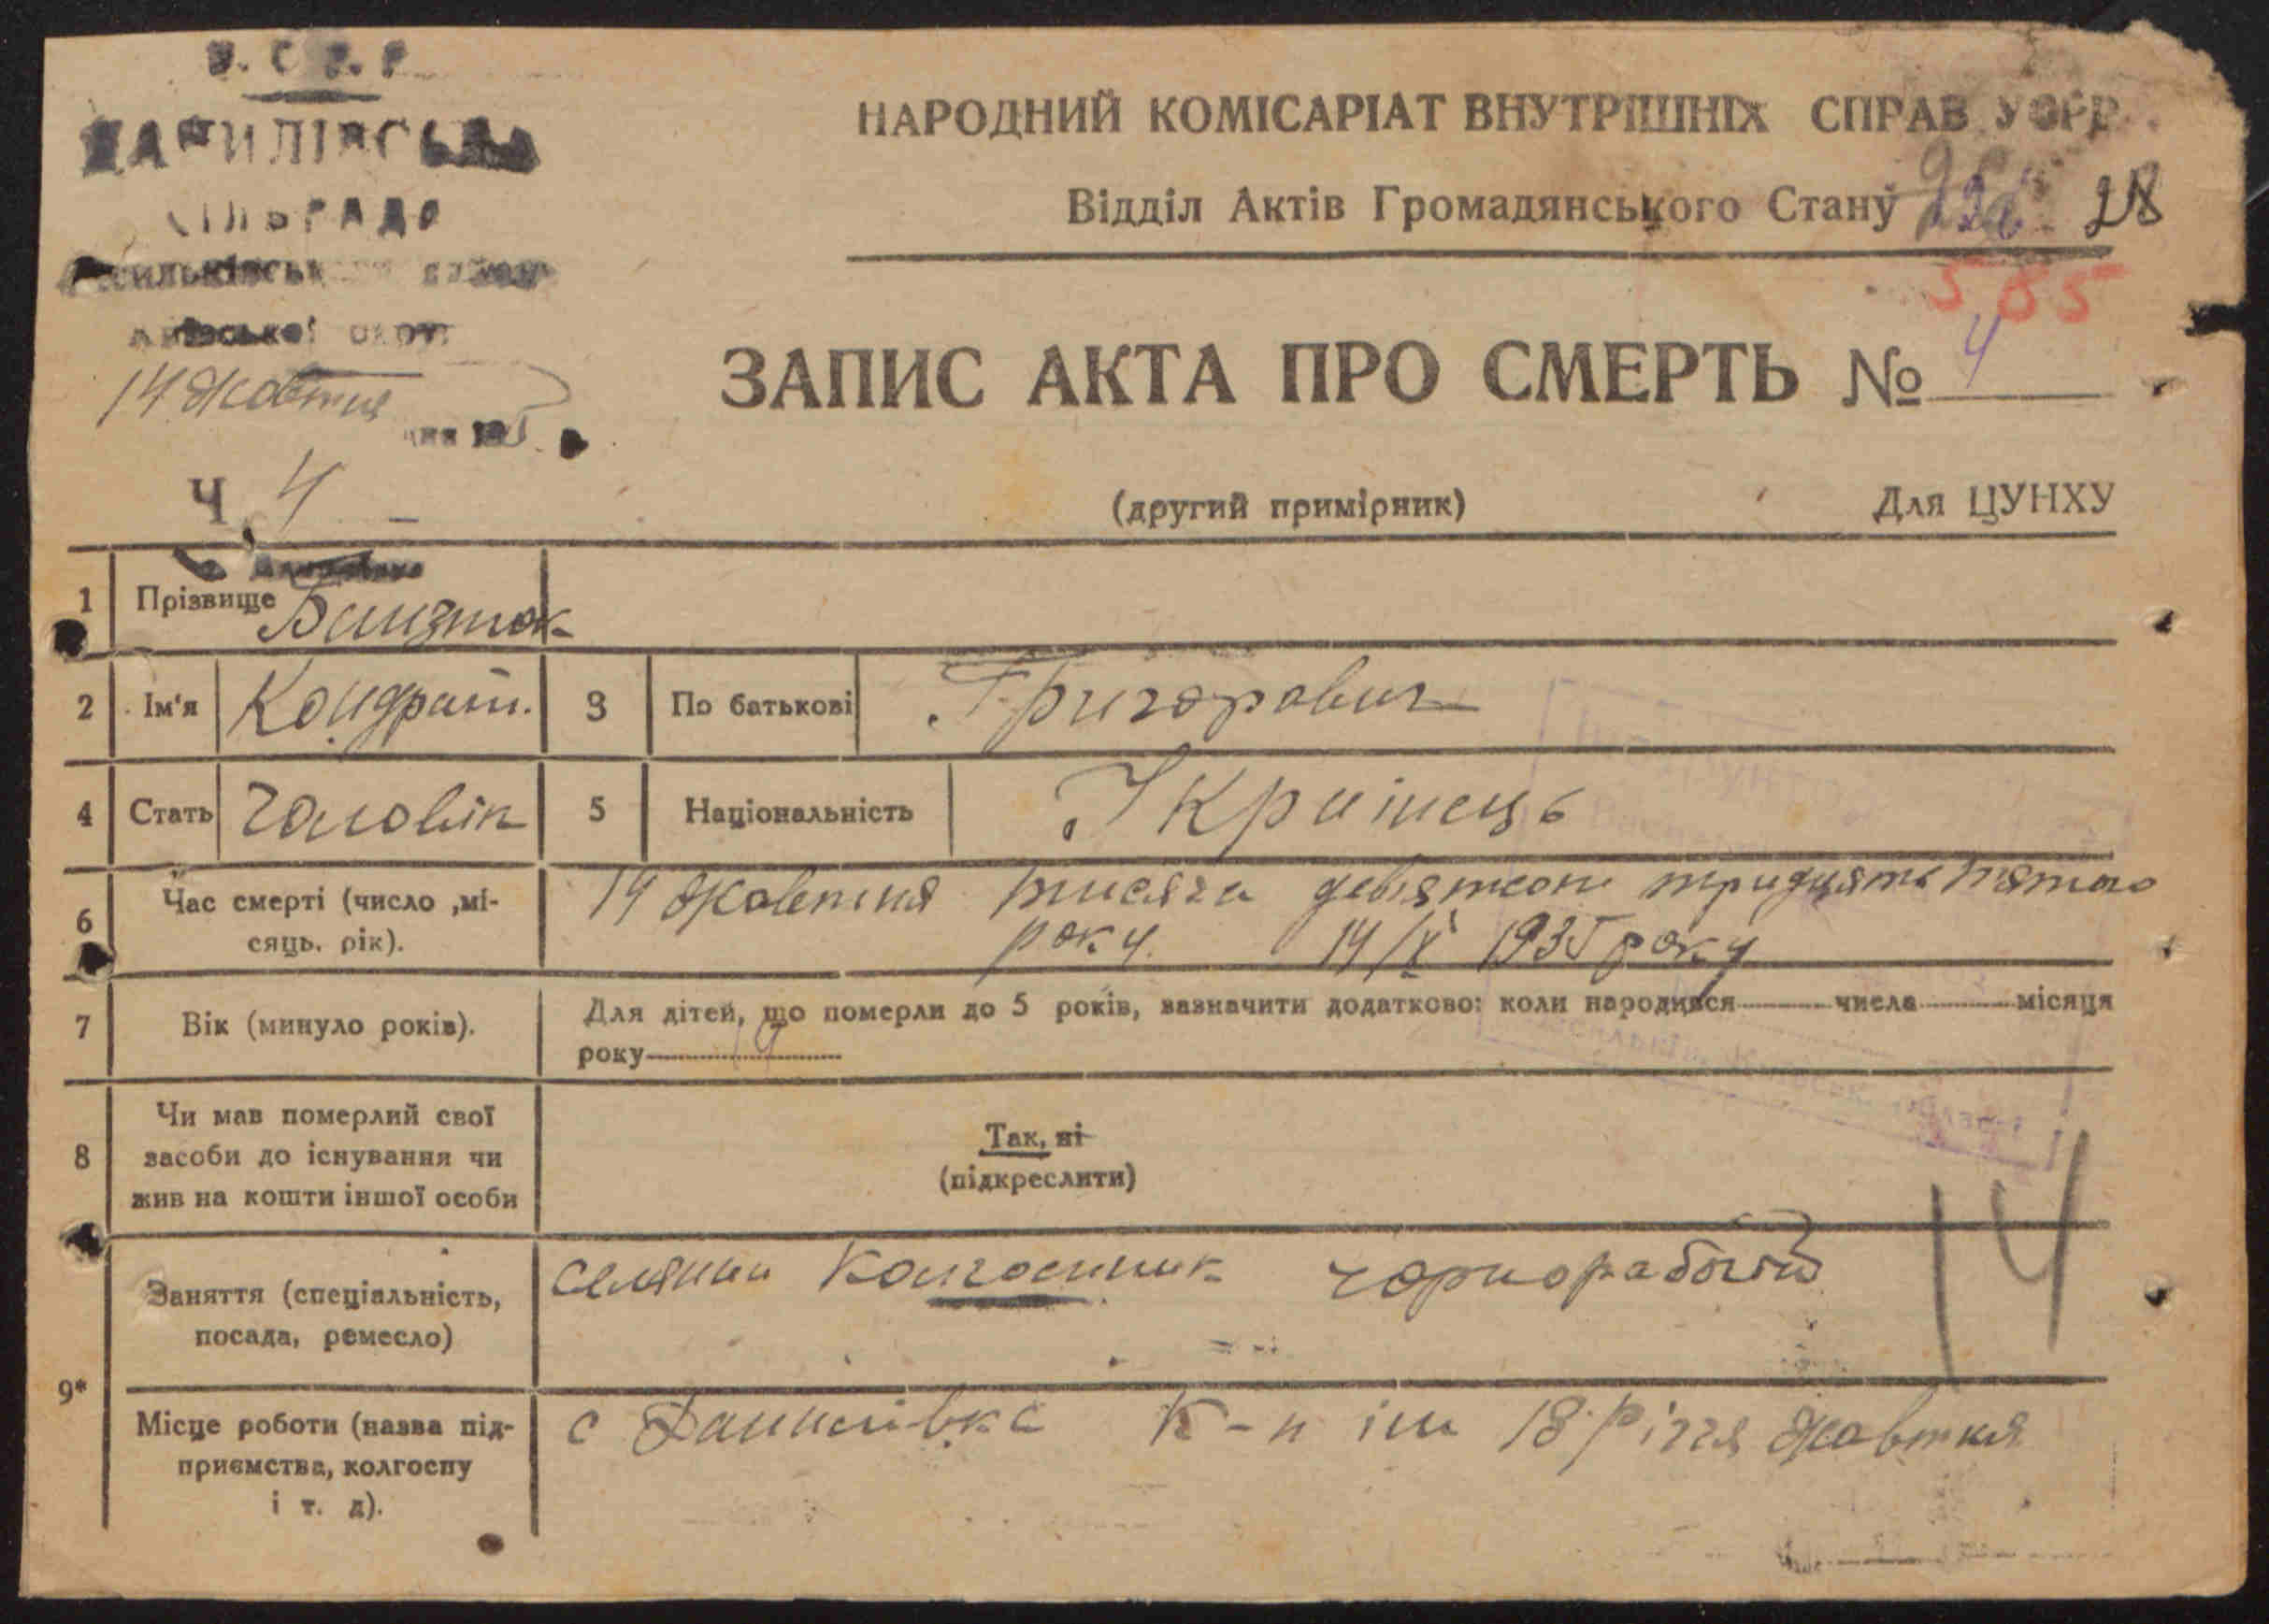 У. С Р. Р
ДАНИЛІВСЬКА
СІЛЬРАДА
Васильківськ
Київської округи
14 Жовтня
Ч. 4
НАРОДНИЙ КОМІСАРІАТ ВНУТРІШНІХ СПРАВ УСРР.
Відділ Актів Громадянського Стану
28
585
ЗАПИС АКТА ПРО СМЕРТЬ № 4
(другий примірник)
Для ЦУНХУ
1 Прізвище Близнюк
2 Ім'я Кондрат. 3 По батькові Григорович
4 Стать Чоловік 5 Національність Украінець
6 Час смерті (число ,мі-
сяць, рік).
14 Жовтня тисяча девятсот тридцять пятого
року. 14/X 1935 року
7 Вік (минуло років). Для дітей, що померли до 5 років, зазначити додатково: коли народився числа місяця
року
8 Чи мав померлий свої
засоби до існування чи
жив на кошти іншої особи
Так, ні
(підкреслити)
14
9* Заняття (спеціальність,
посада, ремесло)
селянин Колгоспник чорнорабочій
Місце роботи (назва під-
приємства, колгоспу
і т. д).
с Данилівка К-п ім 18 річчя Жовтня